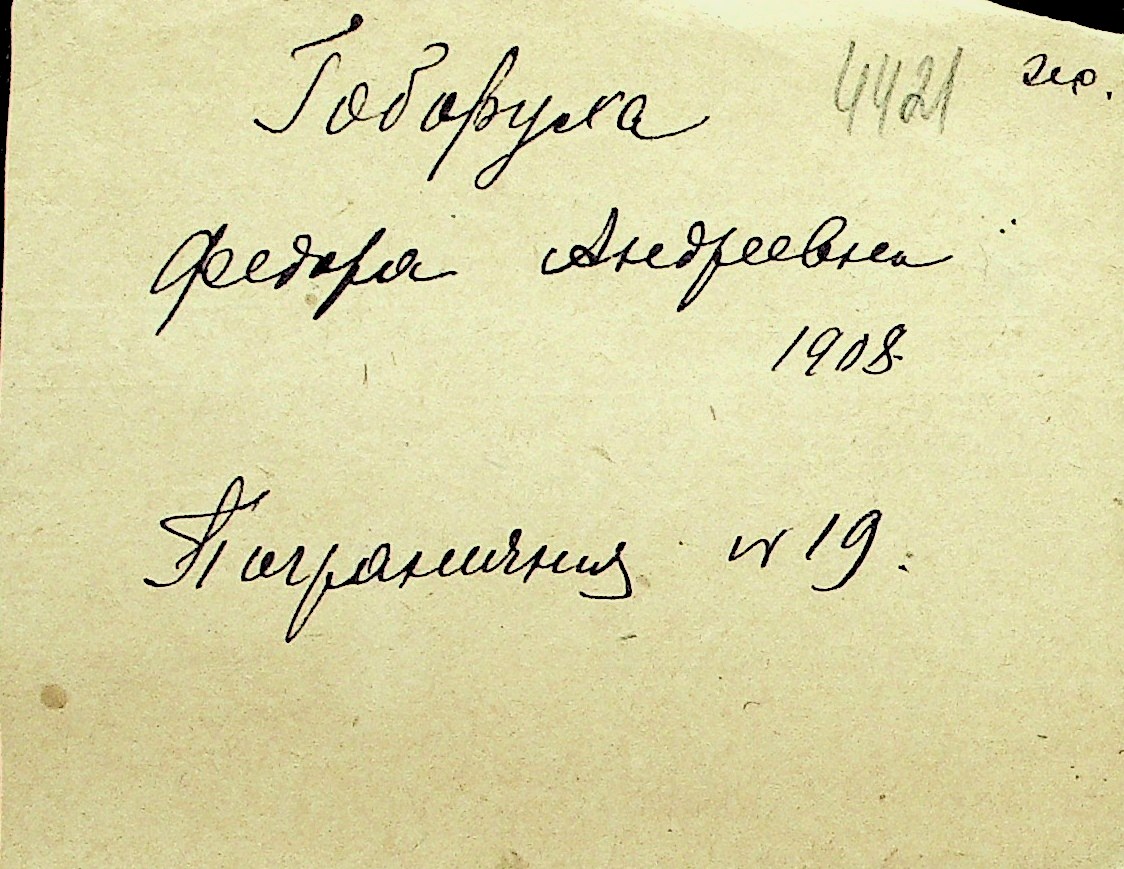 Гоборуха 4421
Федора Андреевна
1908
Пограничная № 19.